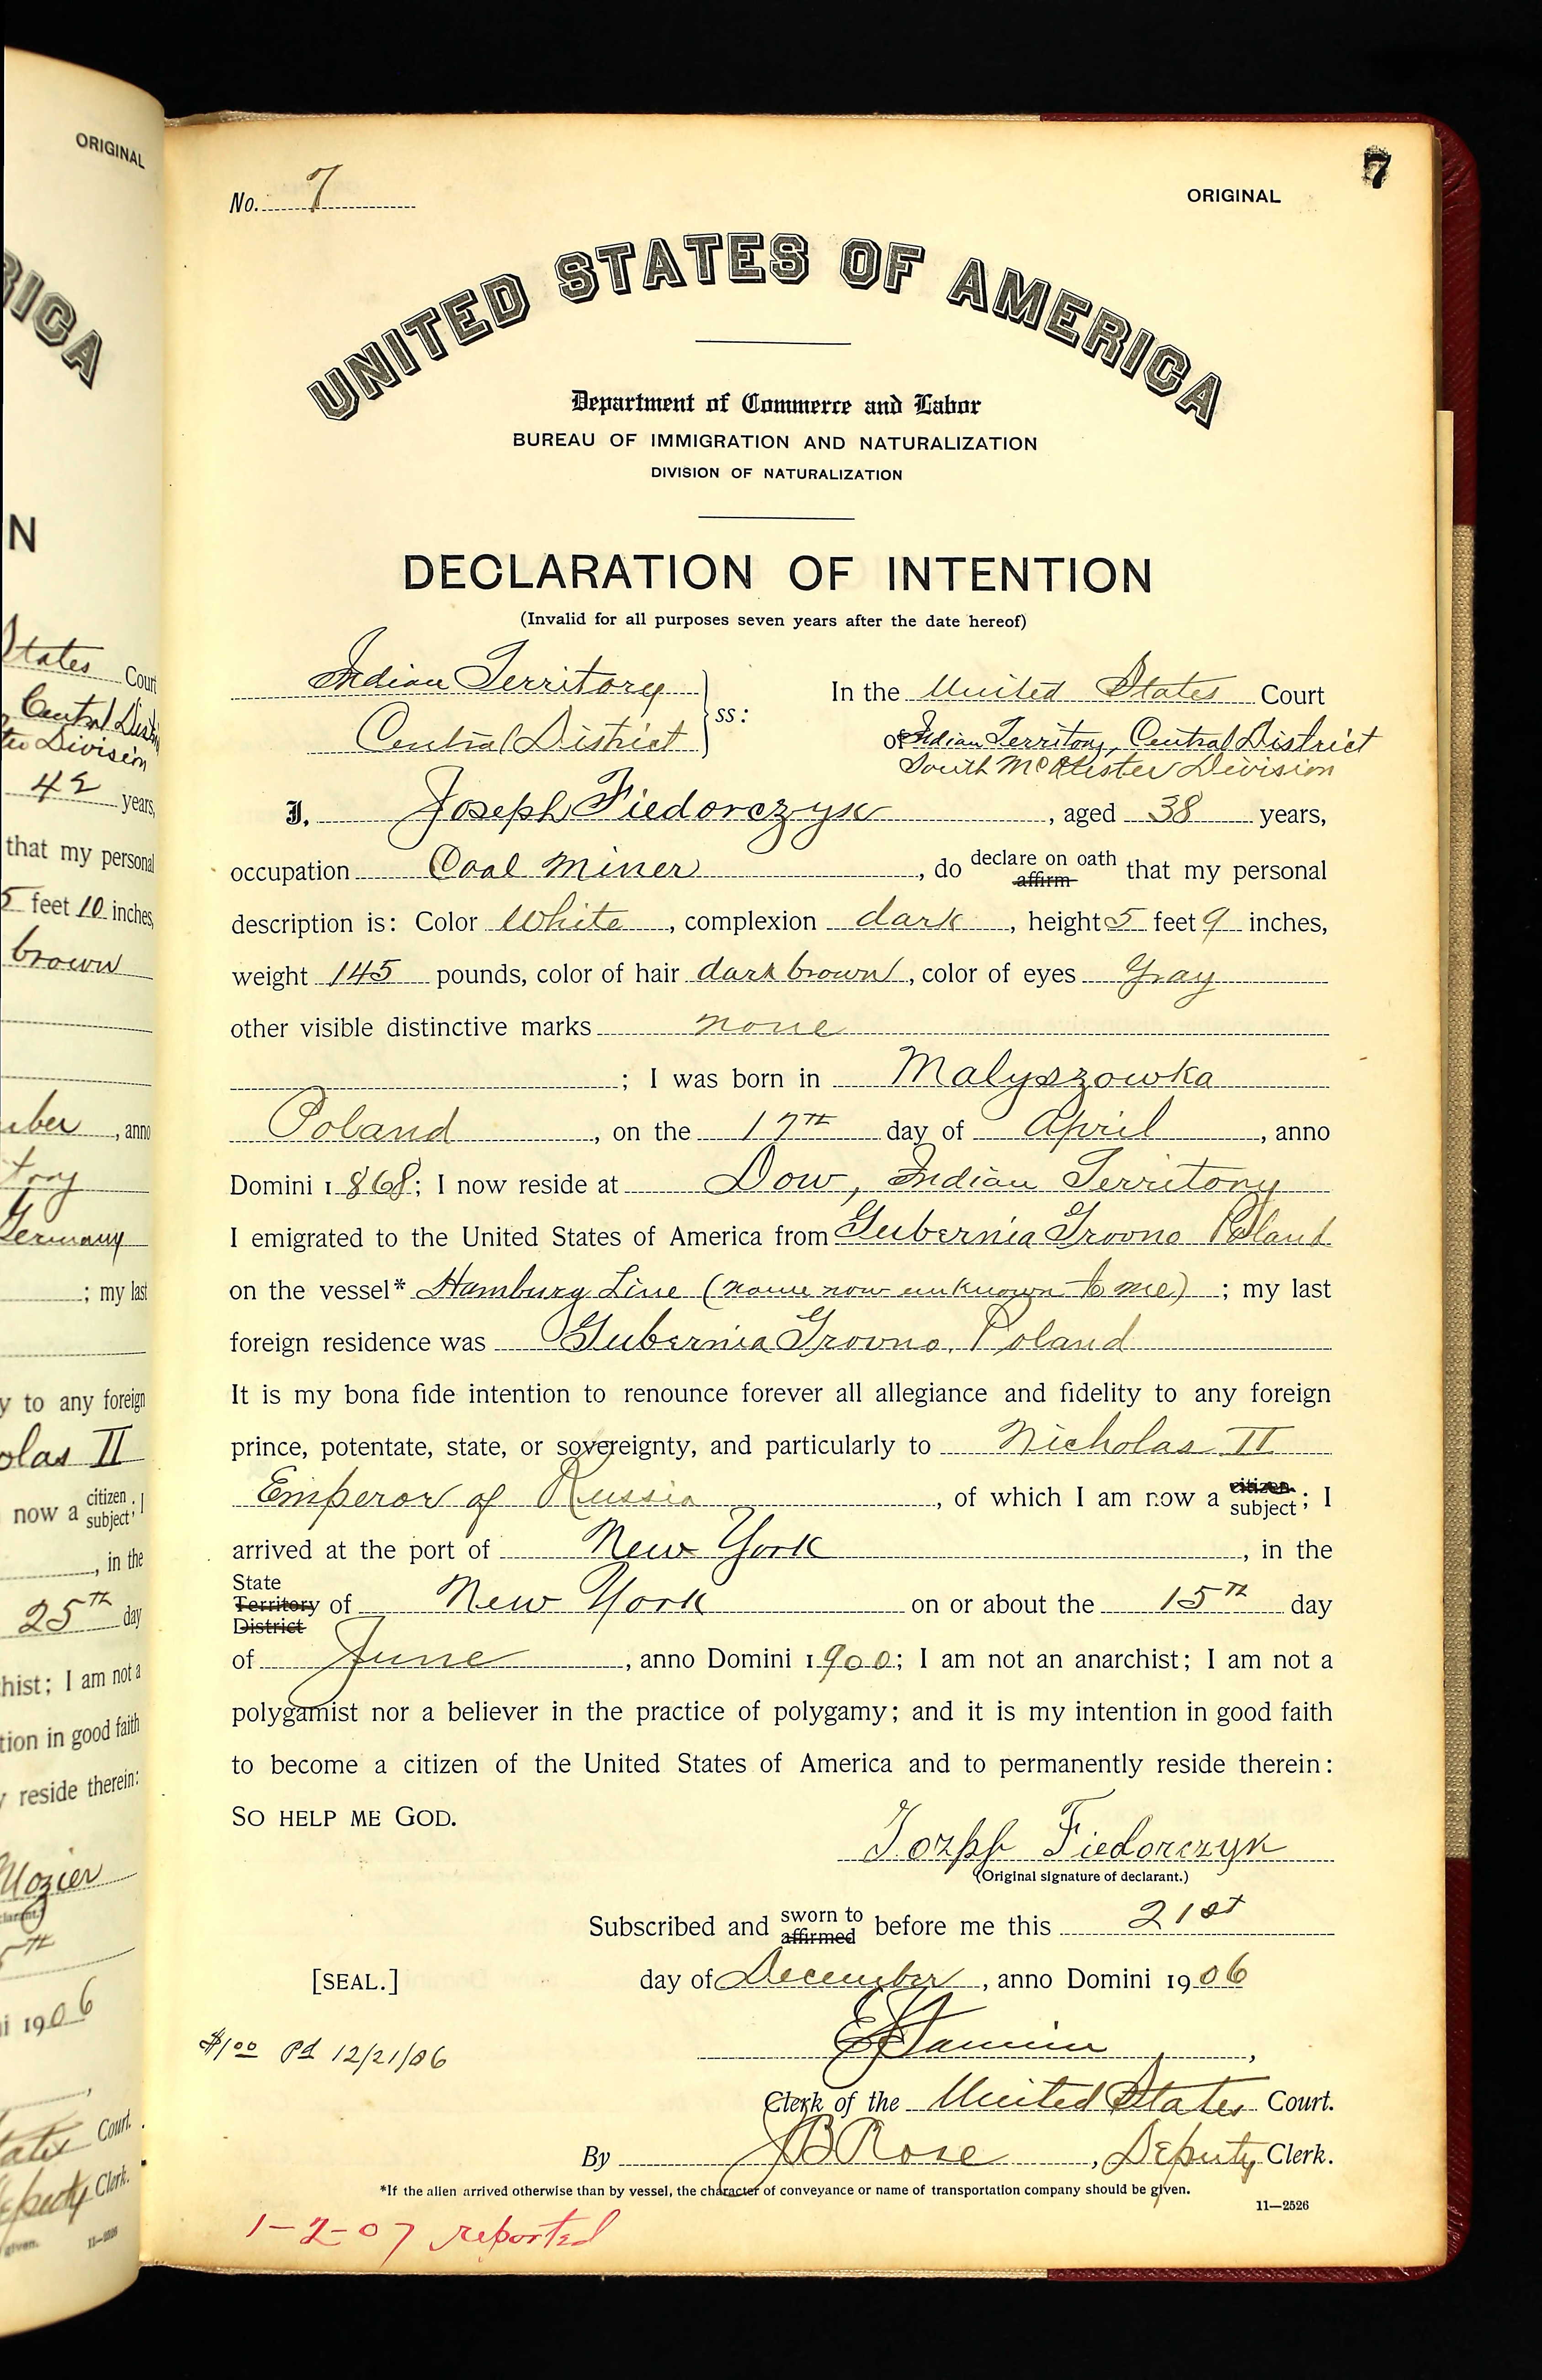 ORIGINAL
7
No. 7
ORIGINAL
UNITED STATES OF AMERICA
Department of Commerce and Labor
BUREAU OF IMMIGRATION AND NATURALIZATION
DIVISION OF NATURALIZATION
DECLARATION OF INTENTION
(Invalid for all purposes seven years after the date hereof)
Indian Territory
Central District
ss:
In the United States Court
of Indian Territory, Central District
South McAlister Division
I, Joseph Fiedorczyk, aged 38 years,
occupation Coal Miner, do declare on oath affirm that my personal
description is: Color White, complexion dark, height 5 feet 9 inches,
weight 145 pounds, color of hair dark brown, color of eyes Gray
other visible distinctive marks none
; I was born in Malyszowka
Poland, on the 17th day of April, anno
Domini 1868; I now reside at Dow, Indian Territory
I emigrated to the United States of America from Gubernia Grovno Poland
on the vessel* Hamburg Line (name now unknown to me); my last
foreign residence was Gubernia Grovno, Poland
It is my bona fide intention to renounce forever all allegiance and fidelity to any foreign
prince, potentate, state, or sovereignty, and particularly to Nicholas II
Emperor of Russia, of which I am now a citizen subject; I
arrived at the port of New York, in the
State Territory District of New York on or about the 15th day
of June, anno Domini 1900; I am not an anarchist; I am not a
polygamist nor a believer in the practice of polygamy; and it is my intention in good faith
to become a citizen of the United States of America and to permanently reside therein:
SO HELP ME GOD.
Fiedorczyk
(Original signature of declarant.)
Subscribed and sworn to affirmed before me this 21st
[SEAL.]
day of December, anno Domini 1906
$1.00 Pd 12/21/06
Clerk of the United States Court.
By JB Rose, Deputy Clerk.
*If the alien arrived otherwise than by vessel, the character of conveyance or name of transportation company should be given.
11—2526
1-2-07 reported